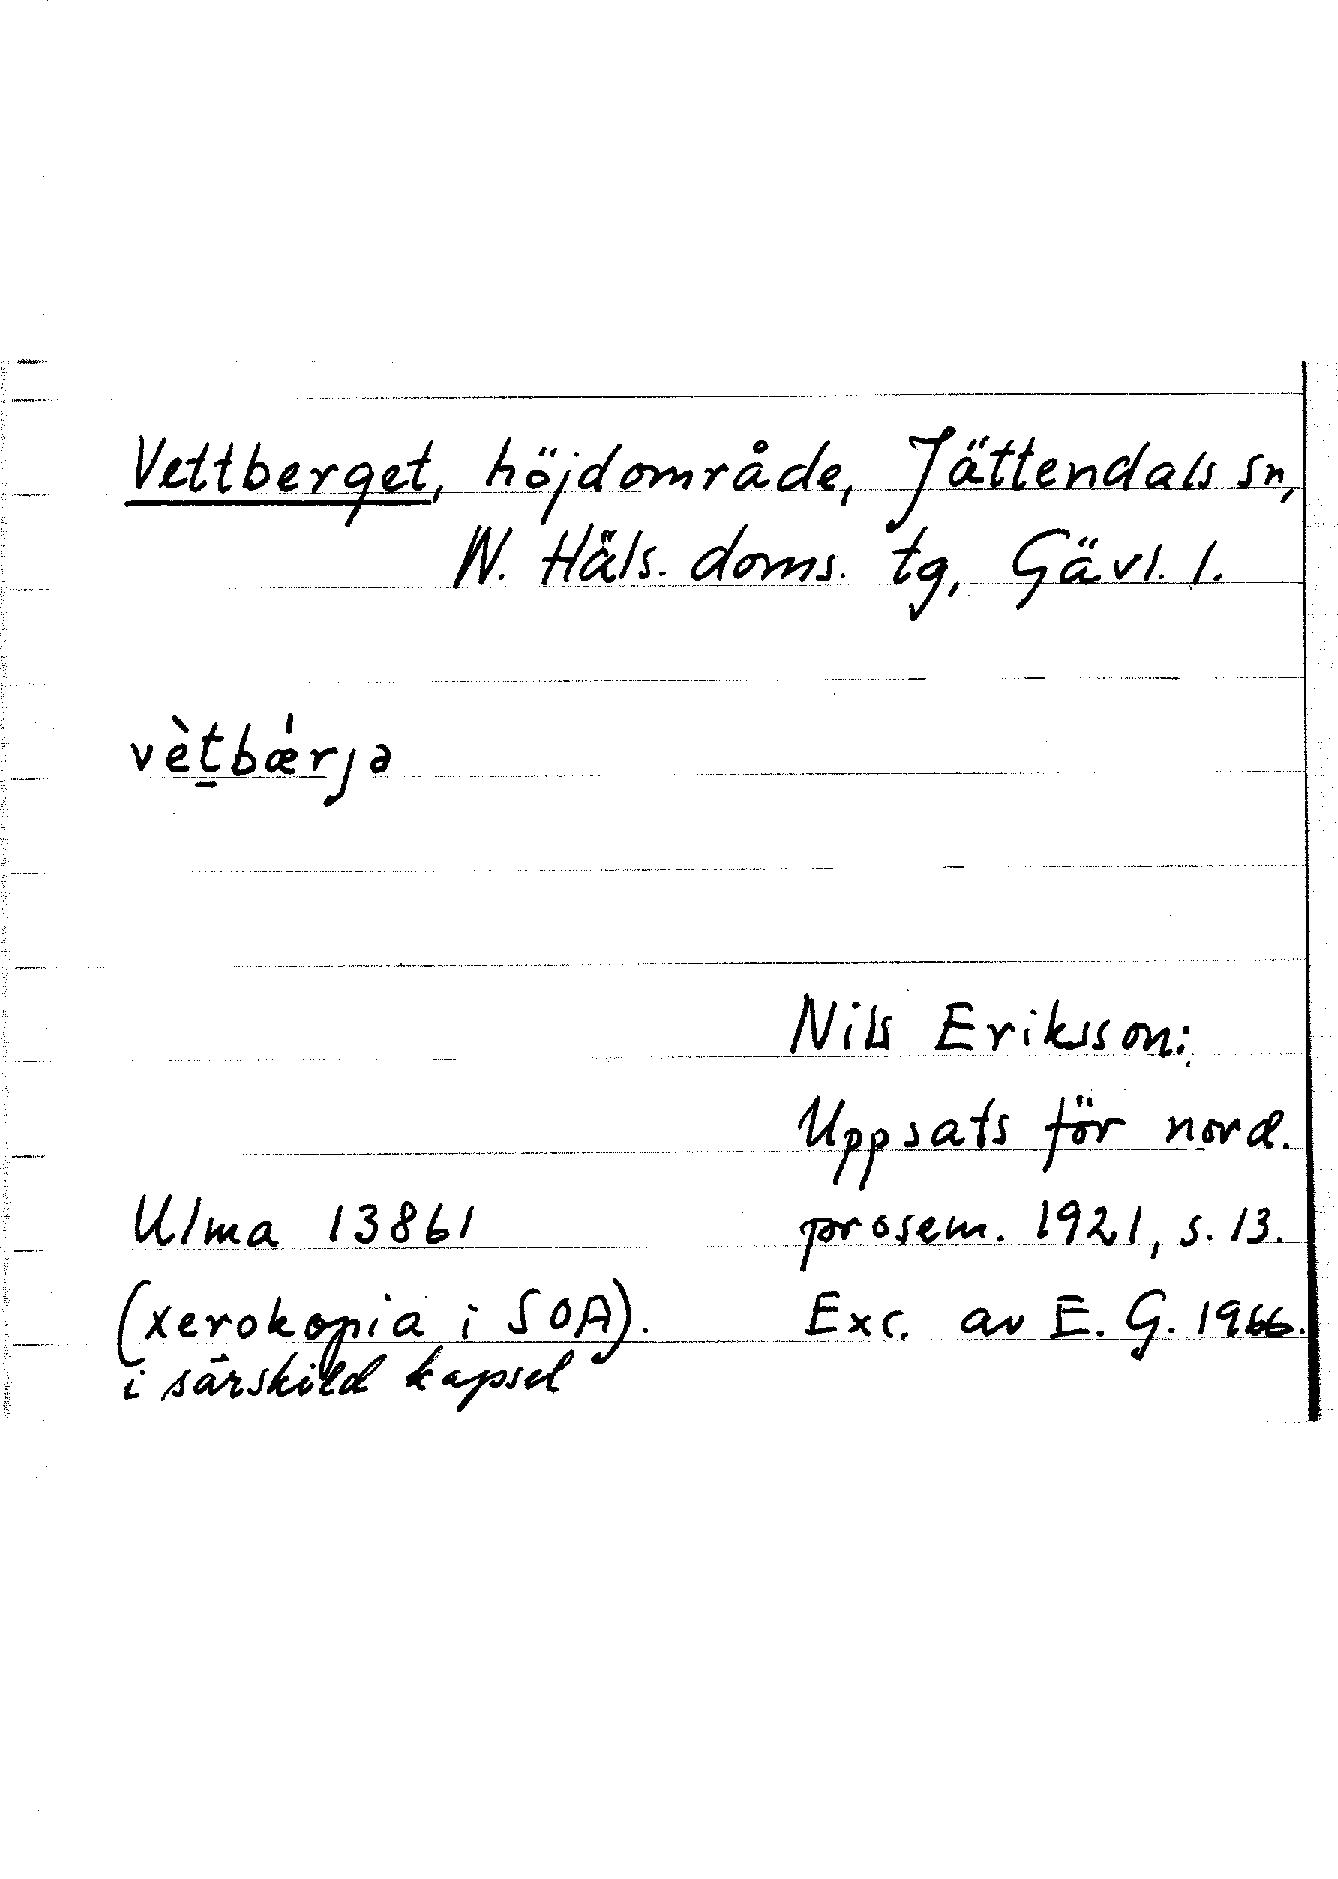 Vettberget, höjdområde, Jättendals sn,
N. Häls. doms. tg, Gävl. l.
vètbǽrjə
Nils Eriksson:
Uppsats för nord.
Ulma 13861 prosem. 1921, s. 13.
(xerokopia i SOA). Exc. av E. G. 1966.
i särskild kapsel